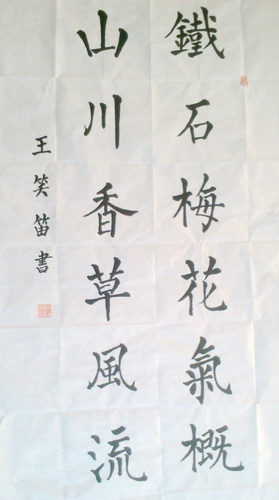 鐵石梅花氣概
山川香草風流
王笑笛書